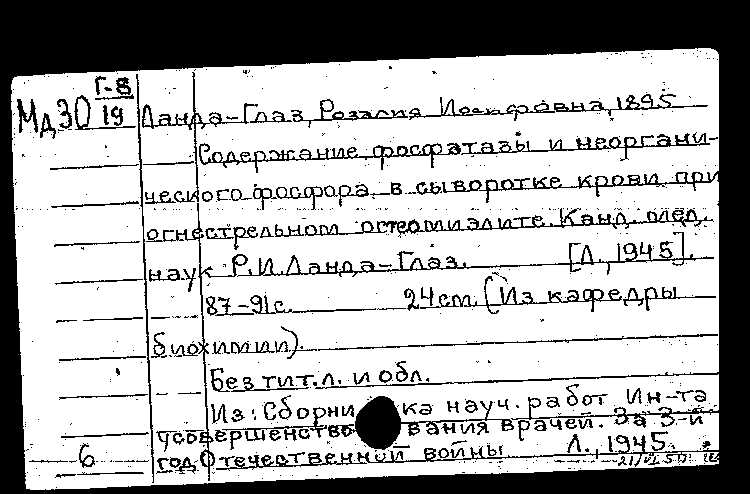 Г-8
МдЗО 19 Ланда-Глаз, Розалия Иосифовна, 1895
Содержание фосфатазы и неоргани-
ческого фосфора в сыворотке крови при
огнестрельном остеомиэлите. Канд. мед.
наук Р.И. Ланда-Глаз. [Л., 1945].
87-91с. 24см. (Из кафедры
биохимии).
Без тит.л. и обл.
Из: Сборни ка науч. работ Ин-та
усовершенство вания врачей. За 3-й
6 год Отечественной войны Л., 1945.